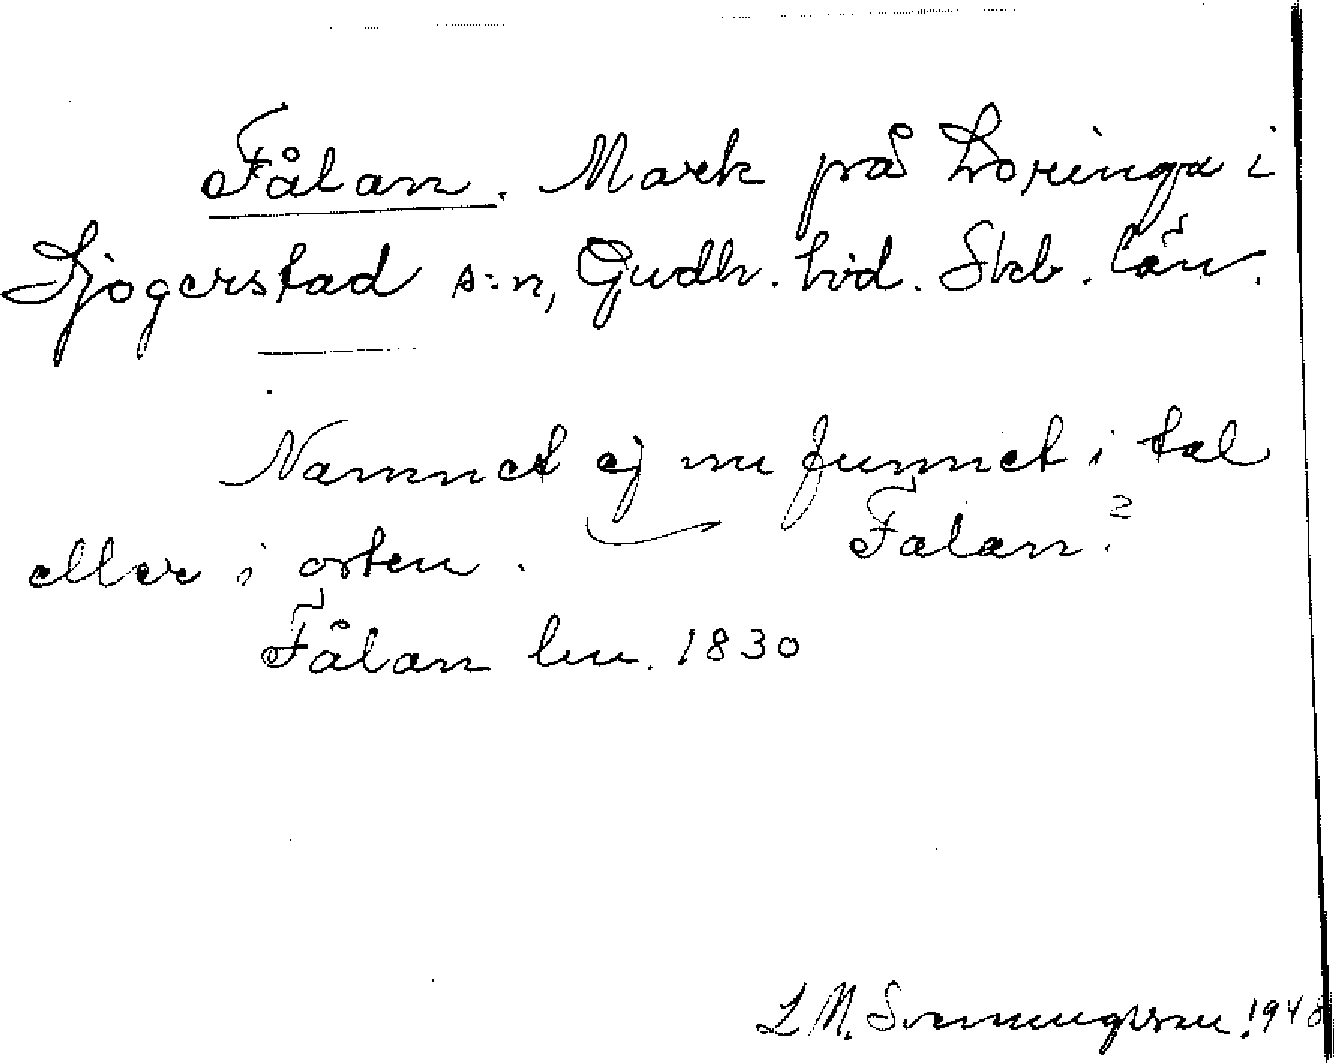 Fålan. Mark på Loringa i
Sjogerstad s:n, Gudh. hd. Skb. län.
Namnet ej nu funnet i tal
eller i orten. Falan?
Fålan lm. 1830
L M. Svenungsson 1948